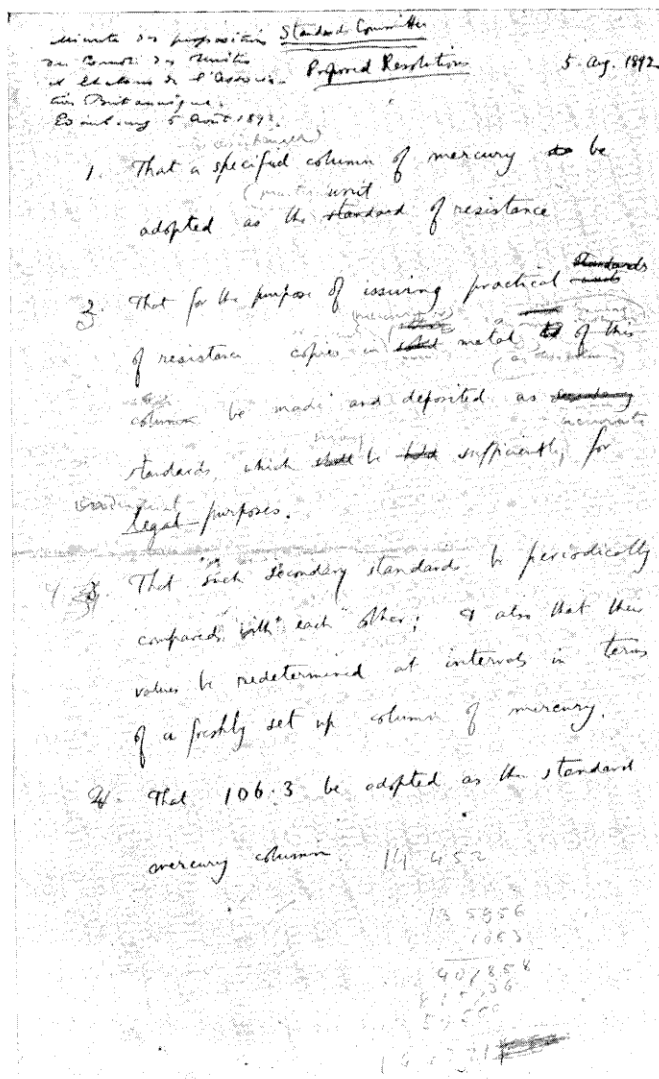 Minute des propositions
du Comité des Unités
et Etalons de l'Associa-
tion Britannique.
Edimbourg 5 Août 1892.
Standard Committee
Proposed Resolutions
5. Aug. 1892
1. That a specified column of mercury to be
unit
adopted as the standard of resistance
3. That for the purpose of issuing practical standards
of resistance copies in solid metal of this
column be made and deposited as secondary
accurate
standards which shall be held sufficiently for
may
legal purposes.
4 3 That such secondary standards be periodically
compared with each other; & also that their
values be redetermined at intervals in terms
of a freshly set up column of mercury.
2 4. That 106.3 be adopted as the standard
mercury column. 14 452
13 5956
1063
407868